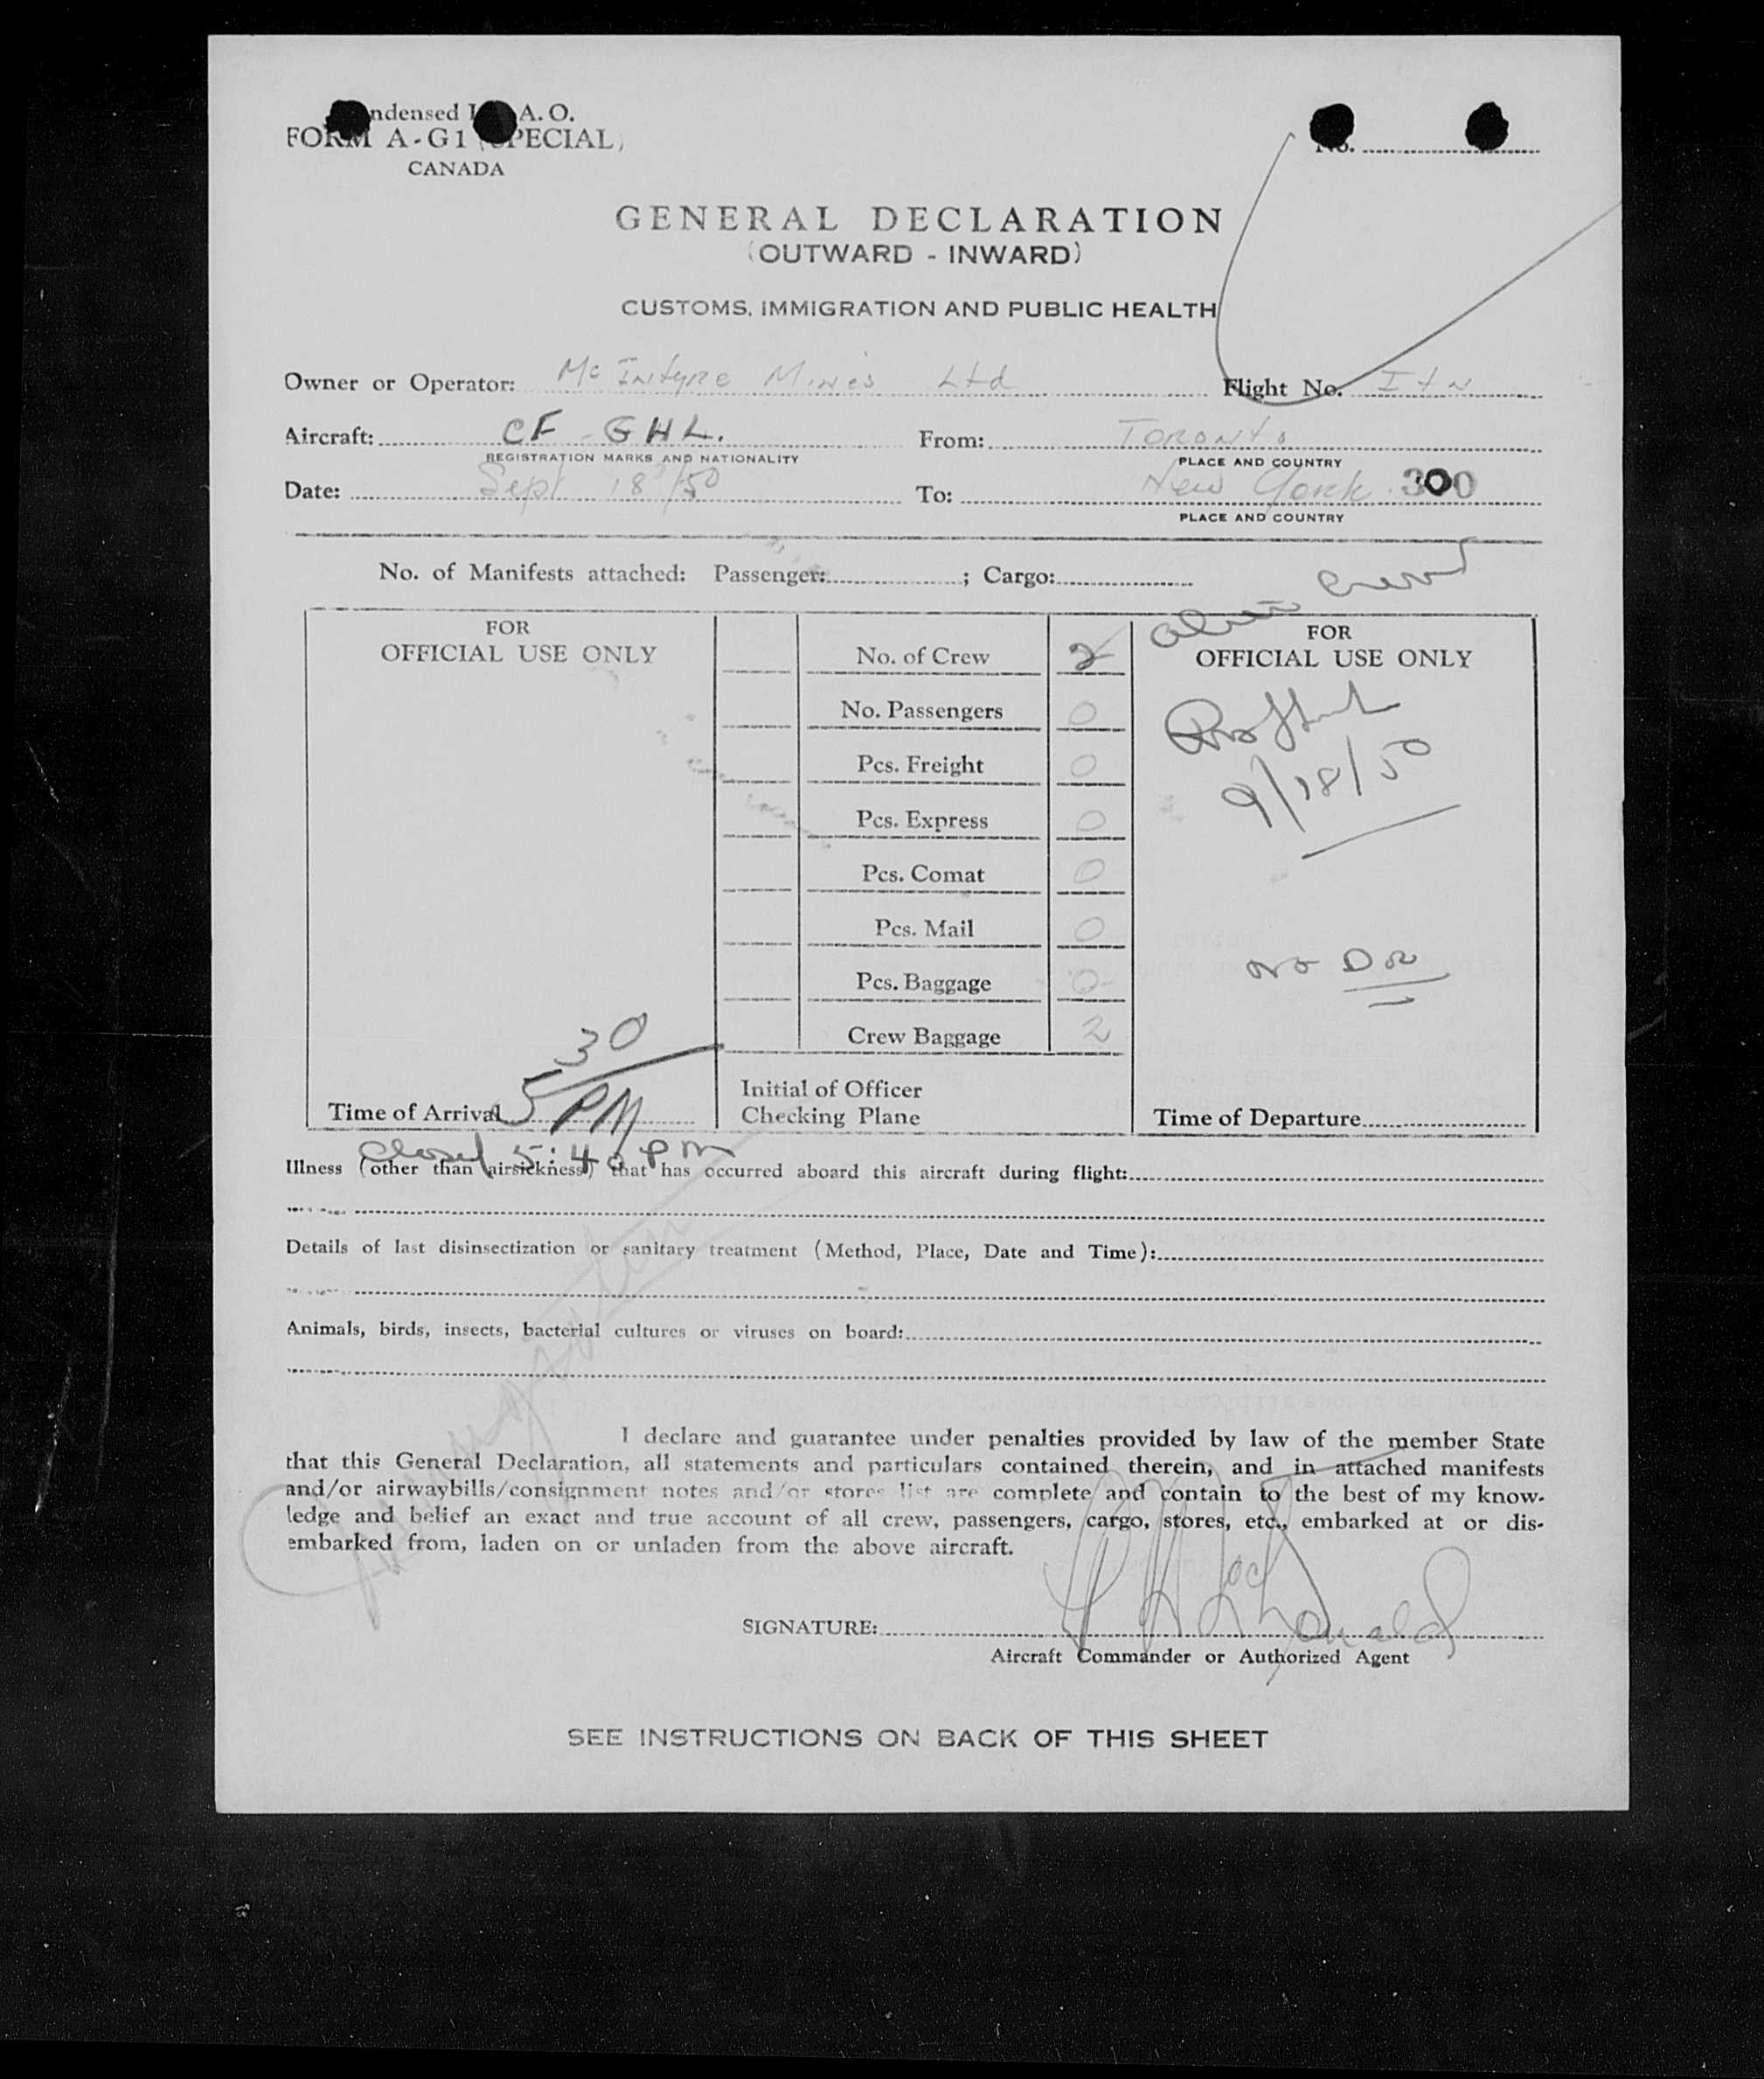 ndensed I A. O.
FORM A-G1 (SPECIAL)
CANADA
No.
GENERAL DECLARATION
(OUTWARD - INWARD)
CUSTOMS, IMMIGRATION AND PUBLIC HEALTH
Owner or Operator: McIntyre Mines Ltd Flight No. Itn
Aircraft: CF-GHL. From: Toronto
REGISTRATION MARKS AND NATIONALITY PLACE AND COUNTRY
Date: Sept 18/50 To: New York 300
PLACE AND COUNTRY
No. of Manifests attached: Passenger: ; Cargo:
alien crew
FOR
OFFICIAL USE ONLY
No. of Crew 2
No. Passengers 0
Pcs. Freight 0
Pcs. Express 0
Pcs. Comat 0
Pcs. Mail 0
Pcs. Baggage 0
Crew Baggage 2
Initial of Officer
Checking Plane
FOR
OFFICIAL USE ONLY
9/18/50
no
Time of Arrival 5 30 PM
Time of Departure
Closed 5:40 PM
Illness (other than airsickness) that has occurred aboard this aircraft during flight:
Details of last disinsectization or sanitary treatment (Method, Place, Date and Time):
Animals, birds, insects, bacterial cultures or viruses on board:
Immigration
I declare and guarantee under penalties provided by law of the member State
that this General Declaration, all statements and particulars contained therein, and in attached manifests
and/or airwaybills/consignment notes and/or stores list are complete and contain to the best of my know-
ledge and belief an exact and true account of all crew, passengers, cargo, stores, etc., embarked at or dis-
embarked from, laden on or unladen from the above aircraft.
SIGNATURE:
Aircraft Commander or Authorized Agent
SEE INSTRUCTIONS ON BACK OF THIS SHEET